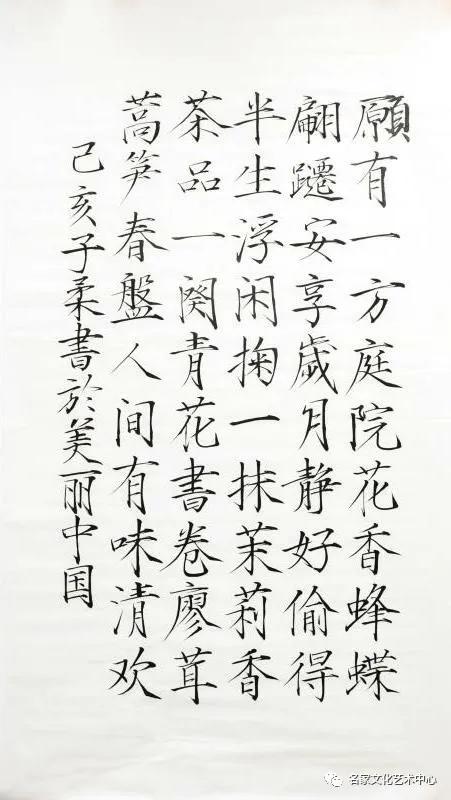 願有一方庭院花香蜂蝶
翩躚安享歲月靜好偷得
半生浮闲掬一抹茉莉香
茶品一阕青花書卷廖茸
蒿笋春盤人间有味清欢
己亥子柔書於美丽中国
名家文化艺术中心